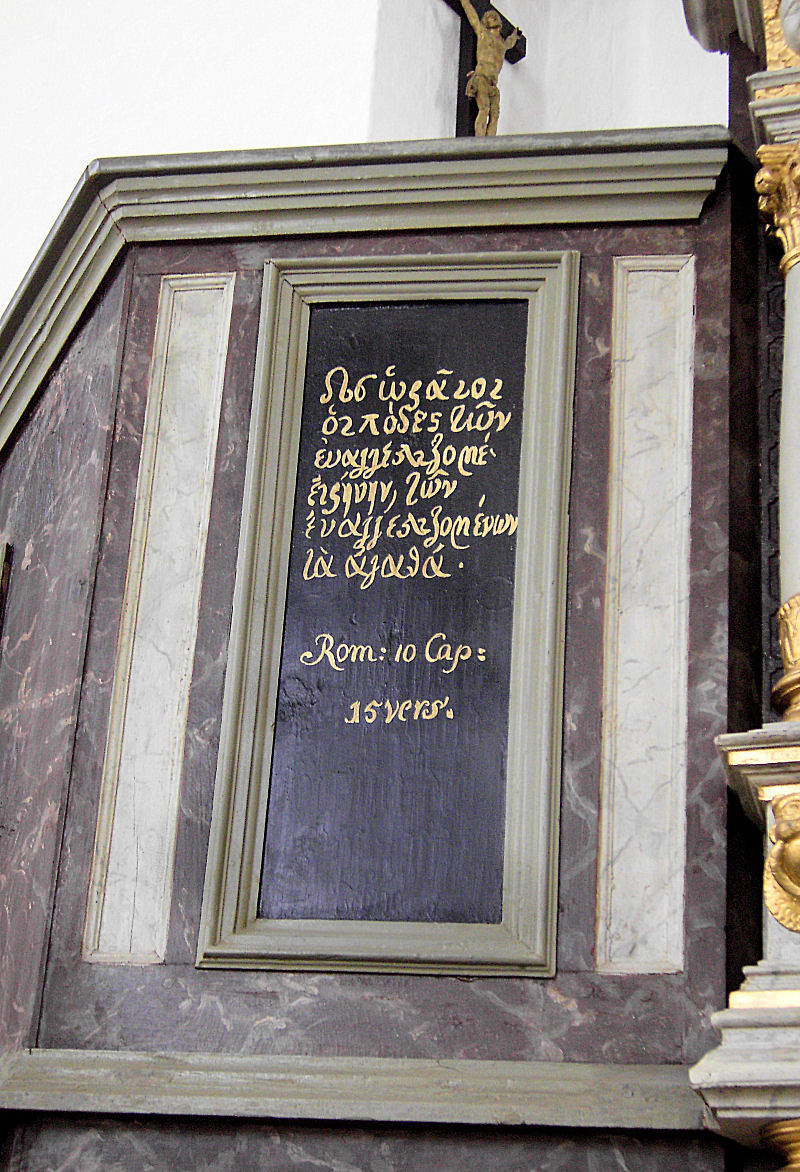 Ως ὡρᾶιοι
ὁι πόδες τῶν
ἐυαγγελιζομέ-
ειρήνην, τῶν
ἐυαγγελιζομένων
τὰ ἀγαθά.
Rom: 10 Cap:
15 vers.